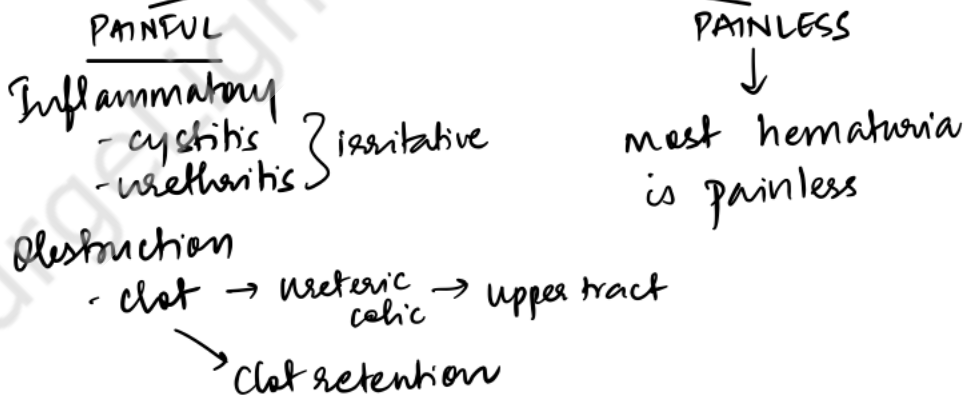 PAINFUL
Inflammatory
- cystitis
- urethritis } irritative
Obstruction
- clot → ureteric colic → upper tract
clot retention
PAINLESS
↓
most hematuria
is painless